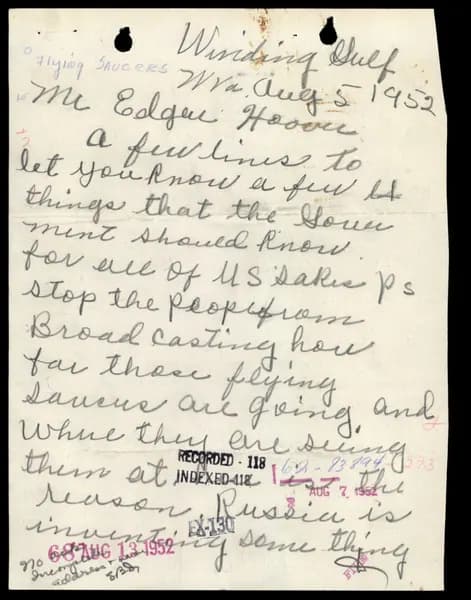 Flying Saucers
Winding Gulf
W Va. Aug 5 1952
Mr Edger Hoover
a few lines to
let you Know a few
things that the Gover
ment should Know
for all of US sakes ps
stop the people from
Broad casting how
far those flying
saucers are going and
where they are seeing
them at is the
RECORDED - 118
INDEXED - 118
62-83894-273
AUG 7 1952
reason Russia is
EX-130
inventing some thing
68 AUG 13 1952
No
Incomplete
address